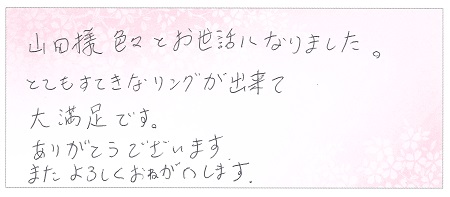 山田様 色々とお世話になりました。
とてもすてきなリングが出来て
大満足です。
ありがとうございます
またよろしくおねがいします.